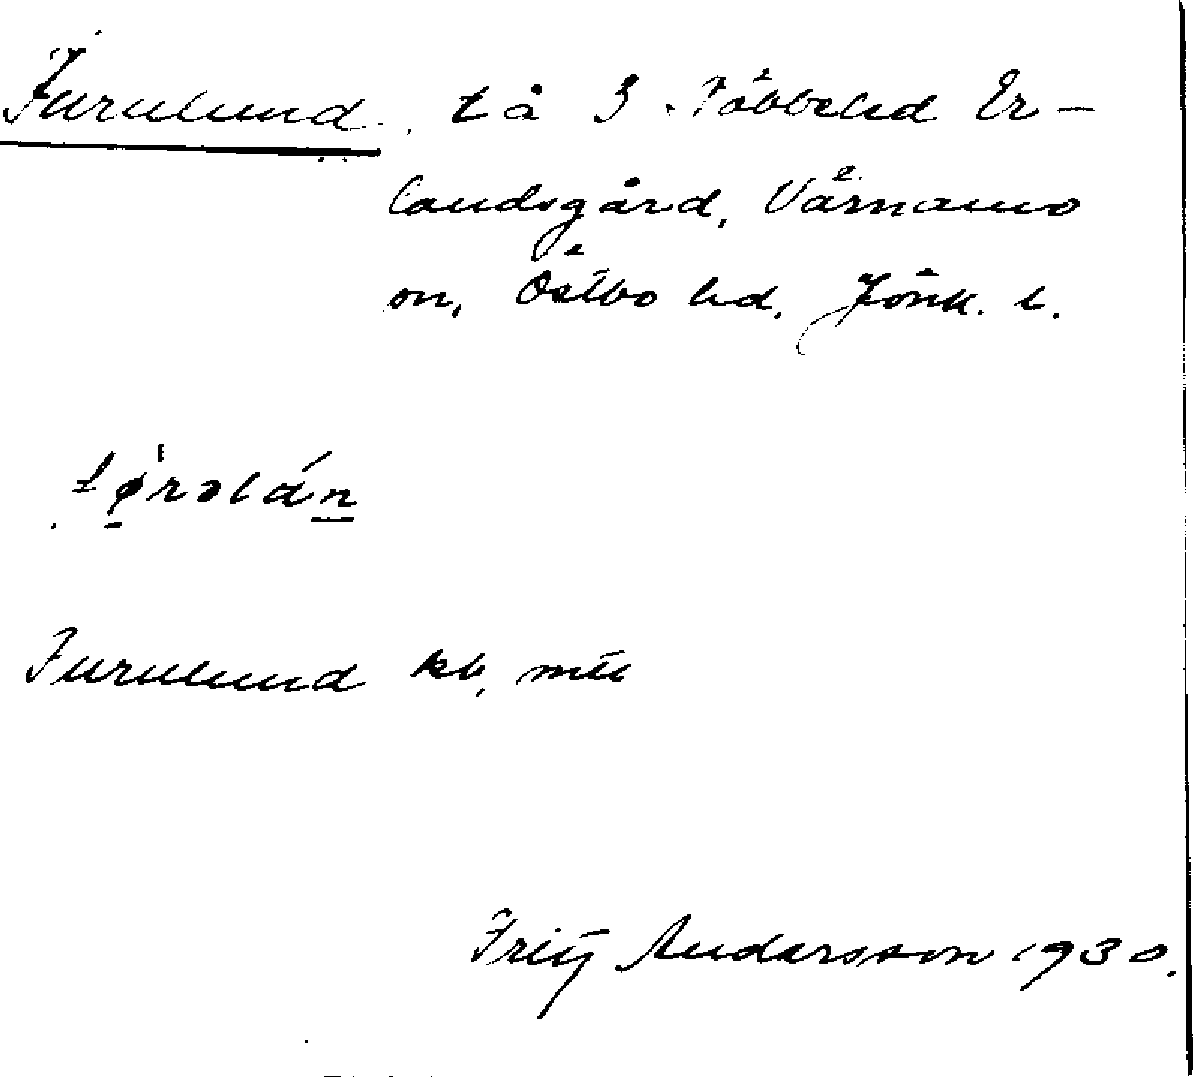 Furulund, t å 3 Näbbelid Er-
landsgård, Värnamo
sn, Östbo hd. Jönk. l.
Furulund kb, mtl
Fritz Andersson 1930.